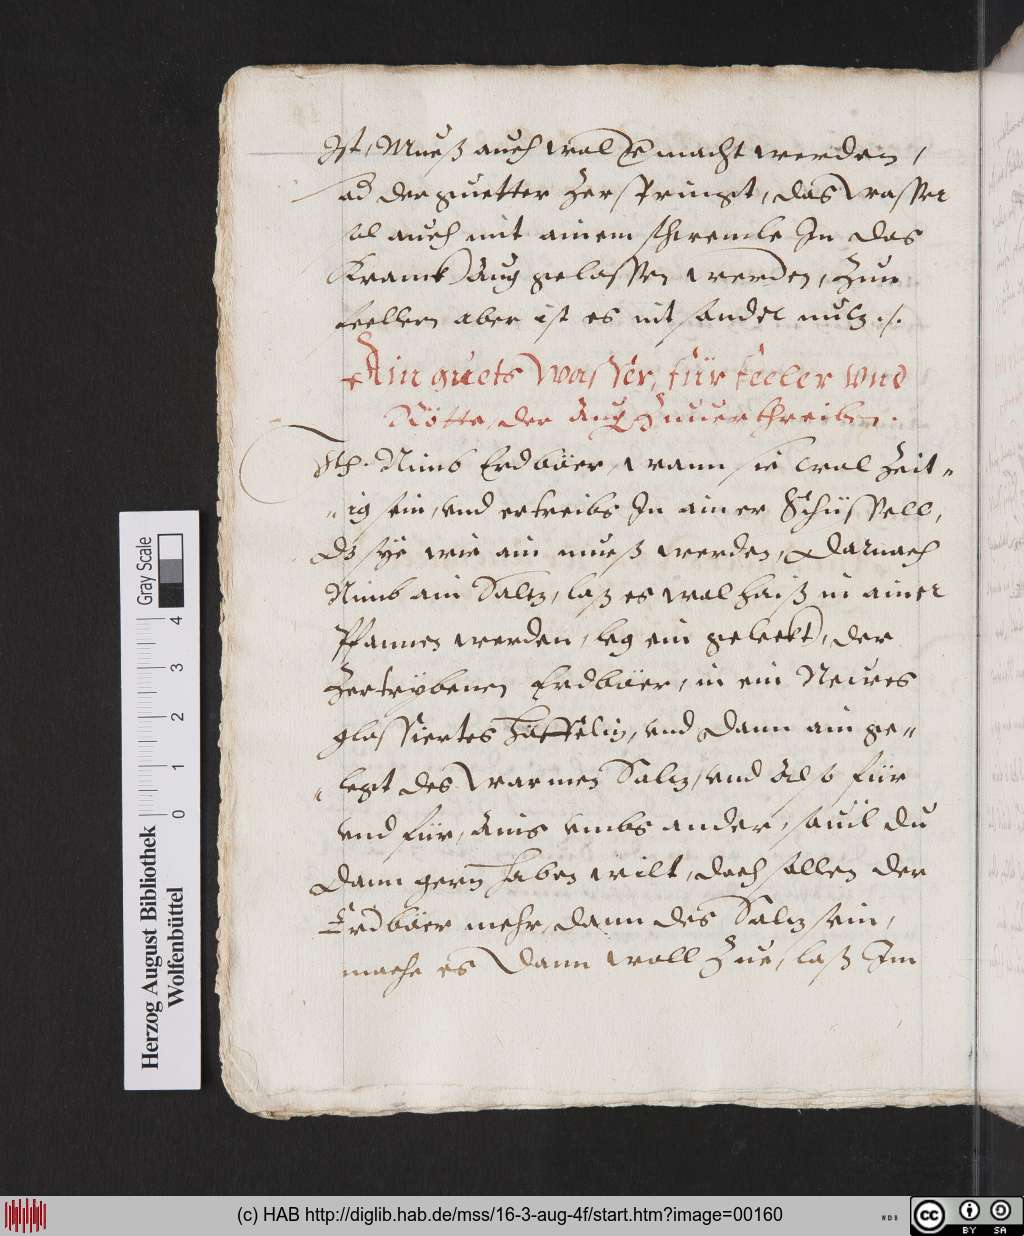 Ist, Mueß auch wol vermacht werden,
od der guetter Zerspringt, das wasser
sol auch mit ainem schwemle In das
Kranck Aug gelassen werden, Zun
feellen aber ist es nit sonder nutz ./.
Ain guets Wasser, für feeler Vnd
Rötte, der Aug Zuuertreiben.
Nimb Erdböer, wann sie wol Zeit-
-ig sein, vnd ertreibs In ainer Schüssell,
Dz sye wie ain mueß werden, Darnach
Nimb ain Saltz, laß es wol haiß in ainer
Pfannen werden, leg ein gelegt, der
Zertrybenen Erdböer, in ein Neuves
glassiertes Häffelin, vnd Dann ain ge-
-legt des warmen Saltz, vnd also für
vnd für, Ains vmbs ander, souil du
Dann gern haben wilt, doch sollen der
Erdböer mehr, dann des Saltz sein,
mache es Dann woll Zue, laß Im
Gray Scale
0 1 2 3 4
Herzog August Bibliothek
Wolfenbüttel
(c) HAB http://diglib.hab.de/mss/16-3-aug-4f/start.htm?image=00160
WDB
cc BY SA